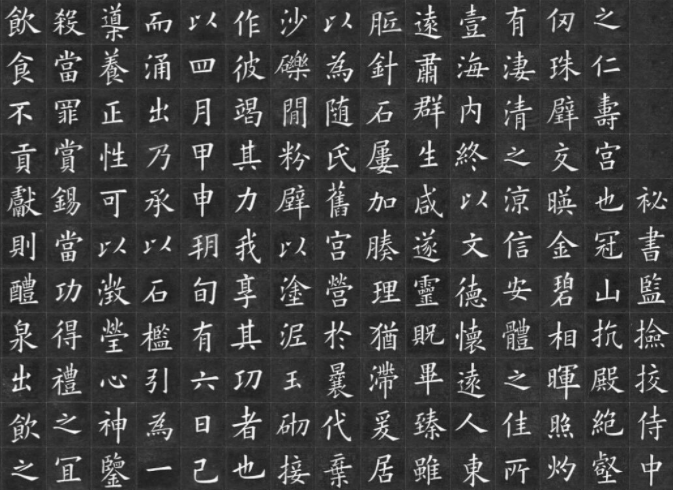 祕書監撿挍侍中
之仁壽宫也冠山抗殿絶壑
仞珠璧交暎金碧相暉照灼
有淒清之涼信安體之佳所
壹海内終以文徳懷遠人東
遠肅群生咸遂靈貺畢臻雖
胝針石屢加腠理猶滯爰居
以為随氏舊宫營於曩代棄
沙礫間粉壁以塗泥玉砌接
作彼竭其力我享其功者也
以四月甲申朔旬有六日己
而涌出乃承以石檻引為一
導養正性可以澂瑩心神鑒
殺當罪賞錫當功得禮之冝
飲食不貢獻則醴泉出飲之